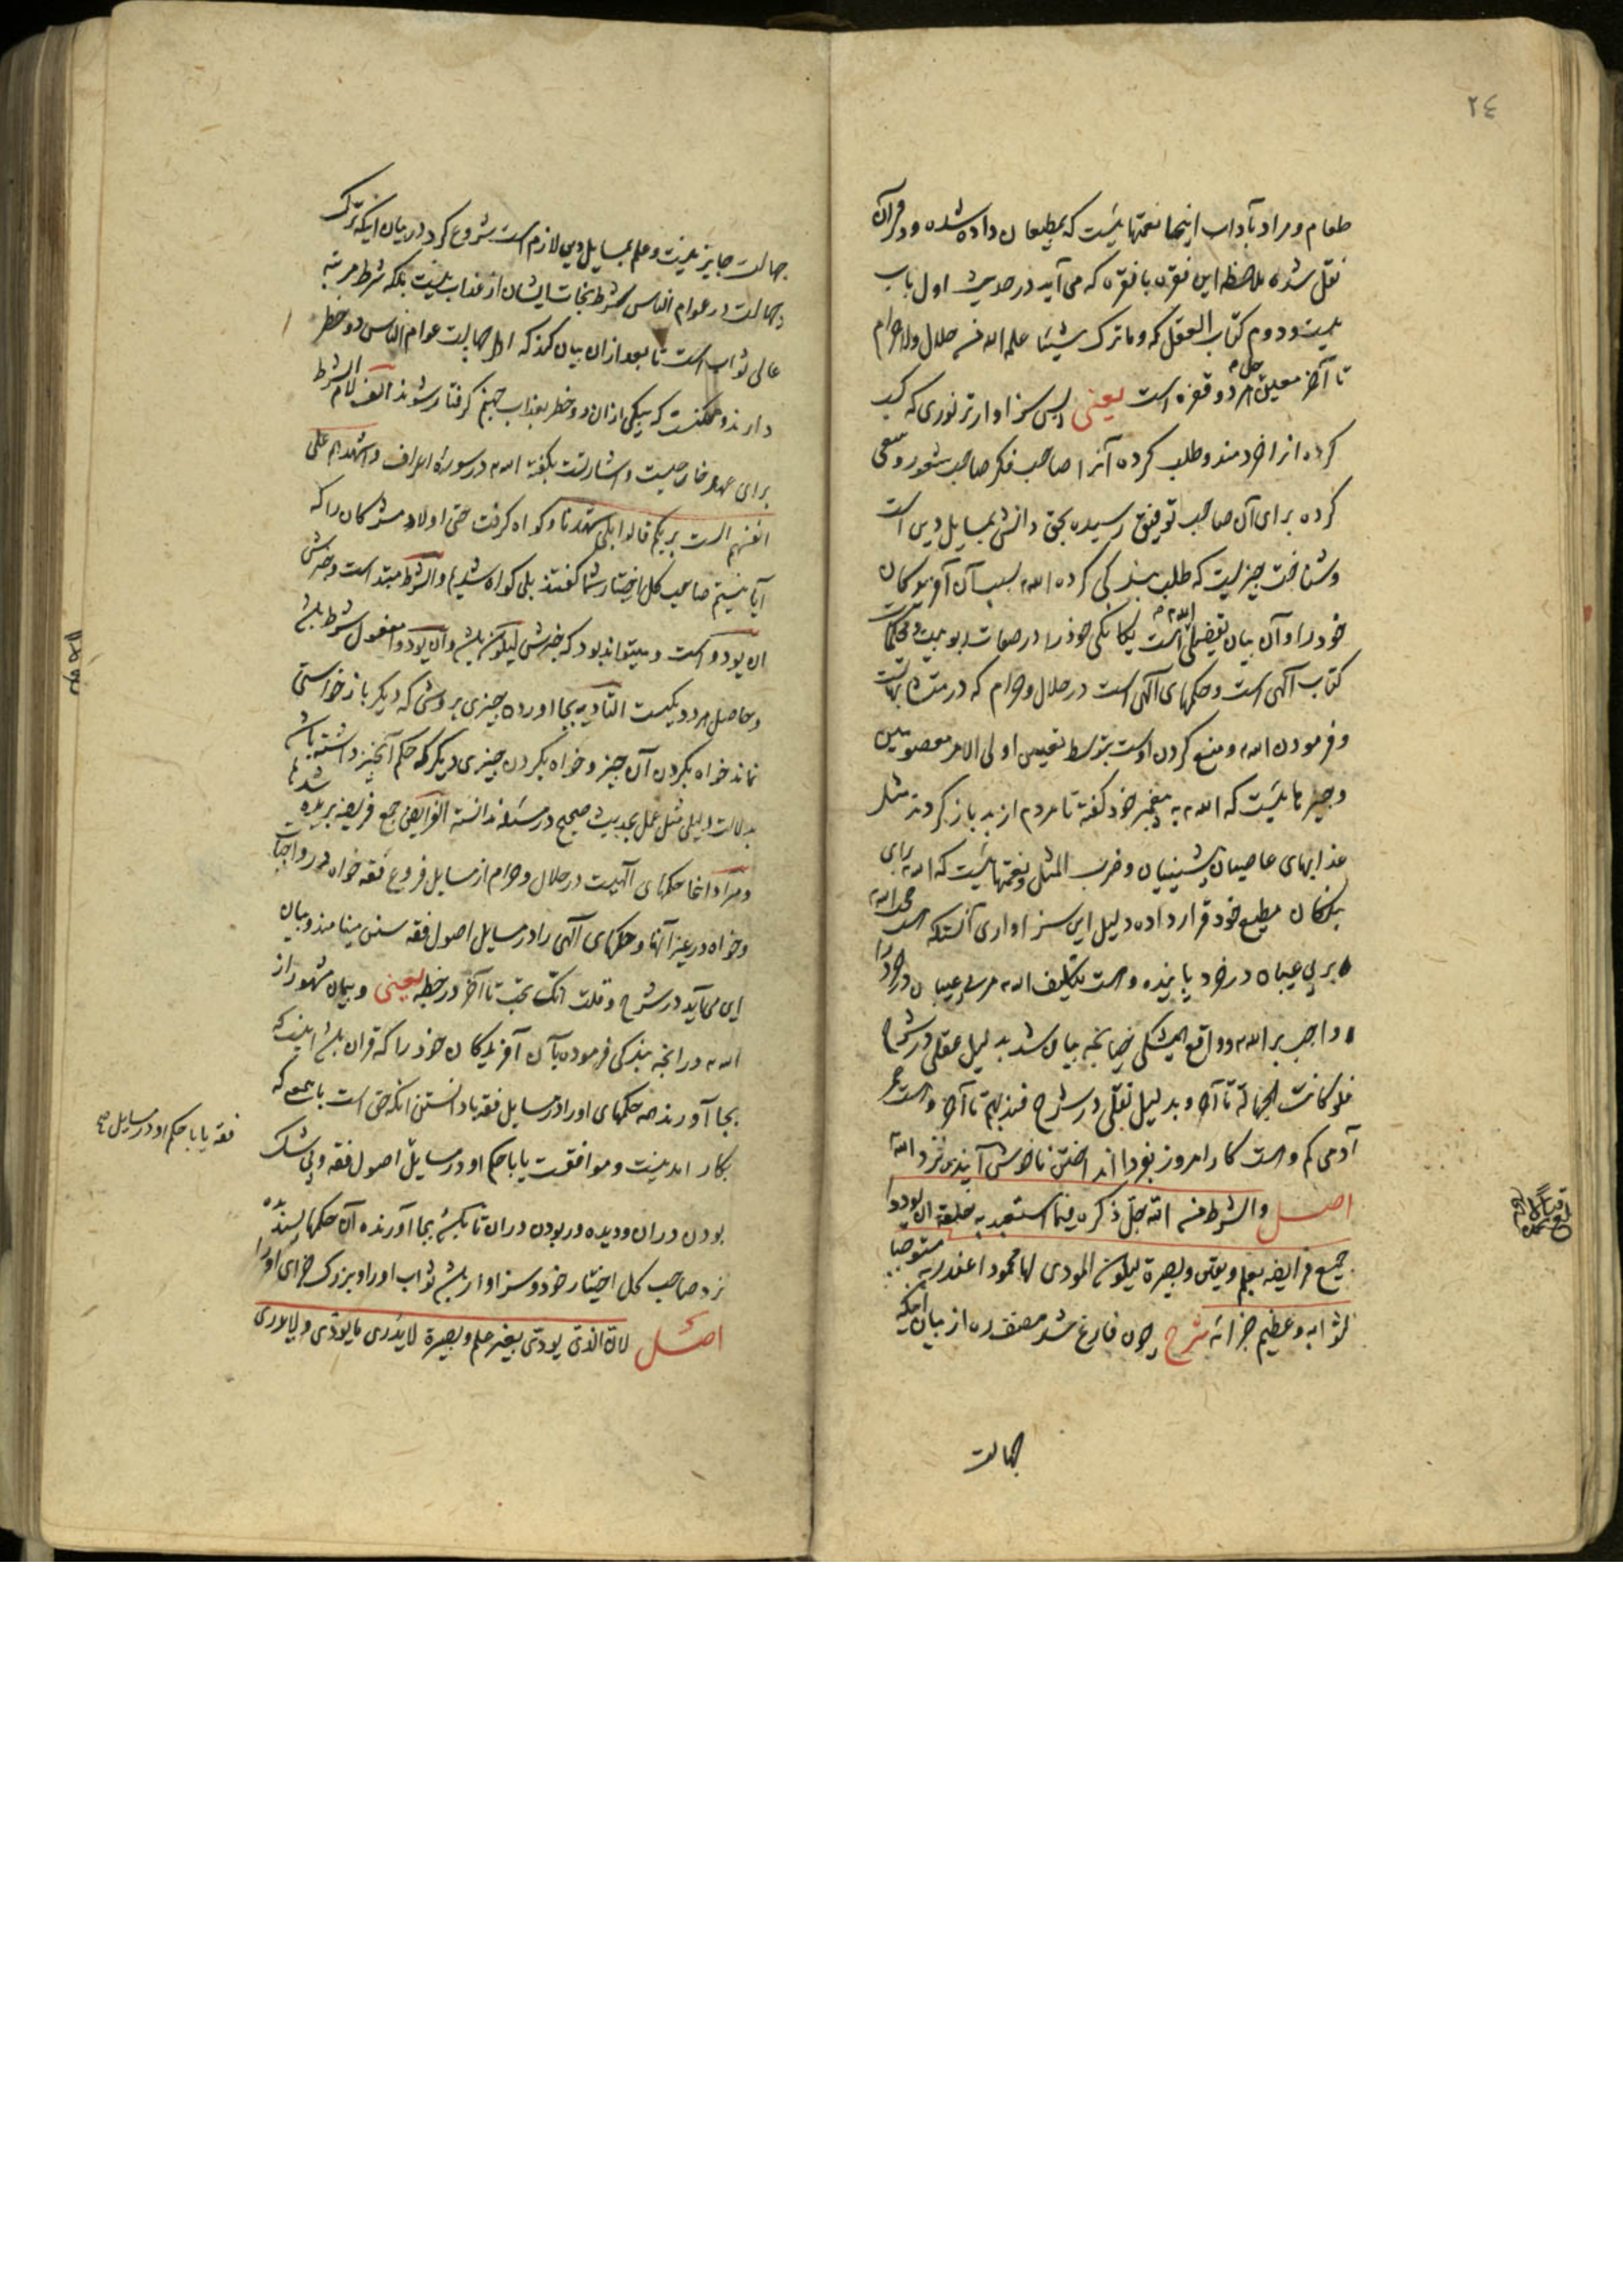 ٢٤
طعام و مراد بآداب اینها نعمتهایست که بمطیعان داده شده و در قرآن
نقل شده ملاحظه این فقره با فقره که می آید در حدیث اول باب
بیست و دوم کتاب العقل که و ما ترک شیئا علمه الله من حلال ولا حرام
تا آخر معین هر دو فقره است یعنی پس سزاوارتر نوری که کسب
کرده انرا خردمند و طلب کرده آنرا صاحب فکر صاحب شعور و سعی
کرده برای آن صاحب توفیق رسیده بحق دانش بمسایل دین است
و شناخت چیزیست که طلب بندگی کرده الله بسبب آن آفریدگان
خود را و آن بیان تفضیلی است یگانگی خود را در صفات ربوبیت در محکمات
کتاب آلهی است و حکمهای آلهی است در حلال و حرام که در متشابهات
و فرمودن الله و منع کردن اوست بتوسط تعیین اولی الامر معصومین
و چیزهایست که الله به پیغمبر خود گفته تا مردم از بد باز گردند مثل
عذابهای عاصیان پیشینیان و ضرب المثل و نعمتهایست که الله برای
بندگان مطیع خود قرار داده دلیل این سزاواری آنستکه
بر بی عیبان در خرد پاینده است بتکلیف الله مر بی عیبان در خرد را
واجب بر الله و واقع همیشگی چنانچه بیان شد بدلیل عقلی در شرح
فلو کانت الجهالة تا آخر و بدلیل نقلی در شرح فندبهم تا آخر و است عمر
آدمی کم و است کار امروز بفردا انداختن ناخوش آینده نزد الله
اصل والشرط من الله جل ذکره فیما استعبد به خلقه ان یودوا
جمیع فرایضه بعلم و یقین و بصیرة لیکون المودی لها محمودا عند ربه مستوجبا
لثوابه و عظیم جزائه شرح چون فارغ شد مصنف ره از بیان اینکه
جهالت
جهالت جایز نیست و علم بمسایل دین لازم است شروع کرد در بیان اینکه ترک
جهالت در عوام الناس شرط نجات ایشان از عذاب نیست بلکه شرط مرتبه
عالی ثواب است تا بعد از ان بیان کند که اهل جهالت عوام الناس دو خطر
دارند و ممکنست که بیکی از ان دو خطر بعذاب جهنم گرفتار شوند الف لام الشرط
برای عهد خارجیست و اشارتست بگفته الله در سوره اعراف و اشهدهم علی
انفسهم الست بربکم قالوا بلی شهدنا و گواه گرفت حتی اولاد مشرکان را که
آیا نیستم صاحب کل اختیار شما گفتند بلی گواه شدیم و الشرط مبتدا است و خبرش
ان یودوا است و میتواند بود که خبرش لیکون باشد و ان یودوا مفعول شرط باشد
و حاصل هر دو یکیست التادیه بجا آوردن چیزی بروشی که دیگر باز خواستی
نماند خواه بکردن آن چیز و خواه بکردن چیزی دیگر که حکم آنچیز داشته باشد
بدلالت دلیلی مثل عمل بحدیث صحیح در مسئله ندانسته الفرایض جمع فریضه بریده شده ها
و مراد اینجا حکمهای آلهیست در حلال و حرام از مسایل فروع فقه خواه در واجبات
و خواه در غیر آنها و حکمهای آلهی را در مسایل اصول فقه سنن مینامند و بیان
این می آید در شرح و قلت انک تحب تا آخر در خطبه یعنی و پیمان مشهور از
الله در آنچه بندگی فرموده بآن آفریدگان خود را که قرآن باشد اینست که
بجا آورند همه حکمهای او را در مسایل فقه با دانستن آنکه حق است با علمی که
بکار آمدنیست و موافقت یابا حکم او در مسایل اصول فقه و بی شک
بودن در ان و دیده ور بودن در ان تا باشد بجا آورنده آن حکمها پسندیده
نزد صاحب کل اختیار خود و سزاوار باشد ثواب او را و بزرگ جزای او را
اصل لان الذی یودی بغیر علم و بصیرة لا یدری ما یودی و لا یدری
فقه یابا حکم او در مسایل صح